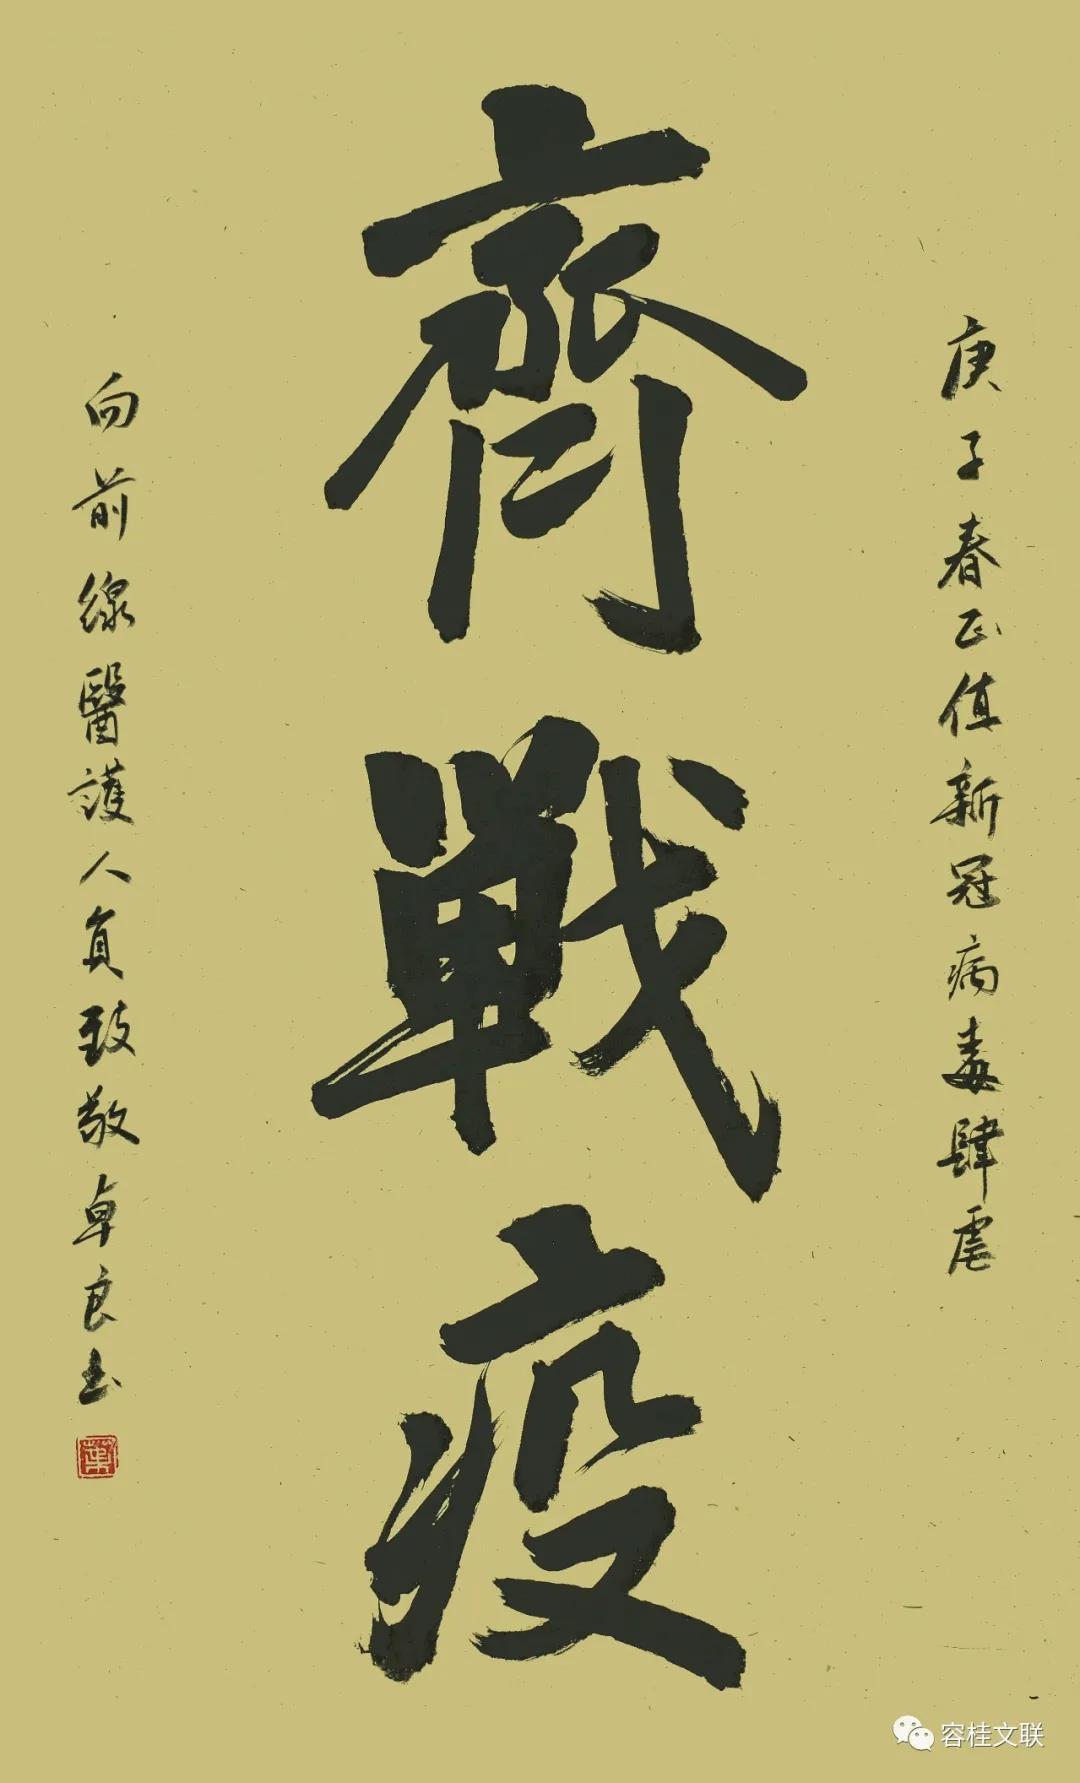 庚子春正值新冠病毒肆虐
齊戦疫
向前線醫護人員致敬卓良书
葉
容桂文联